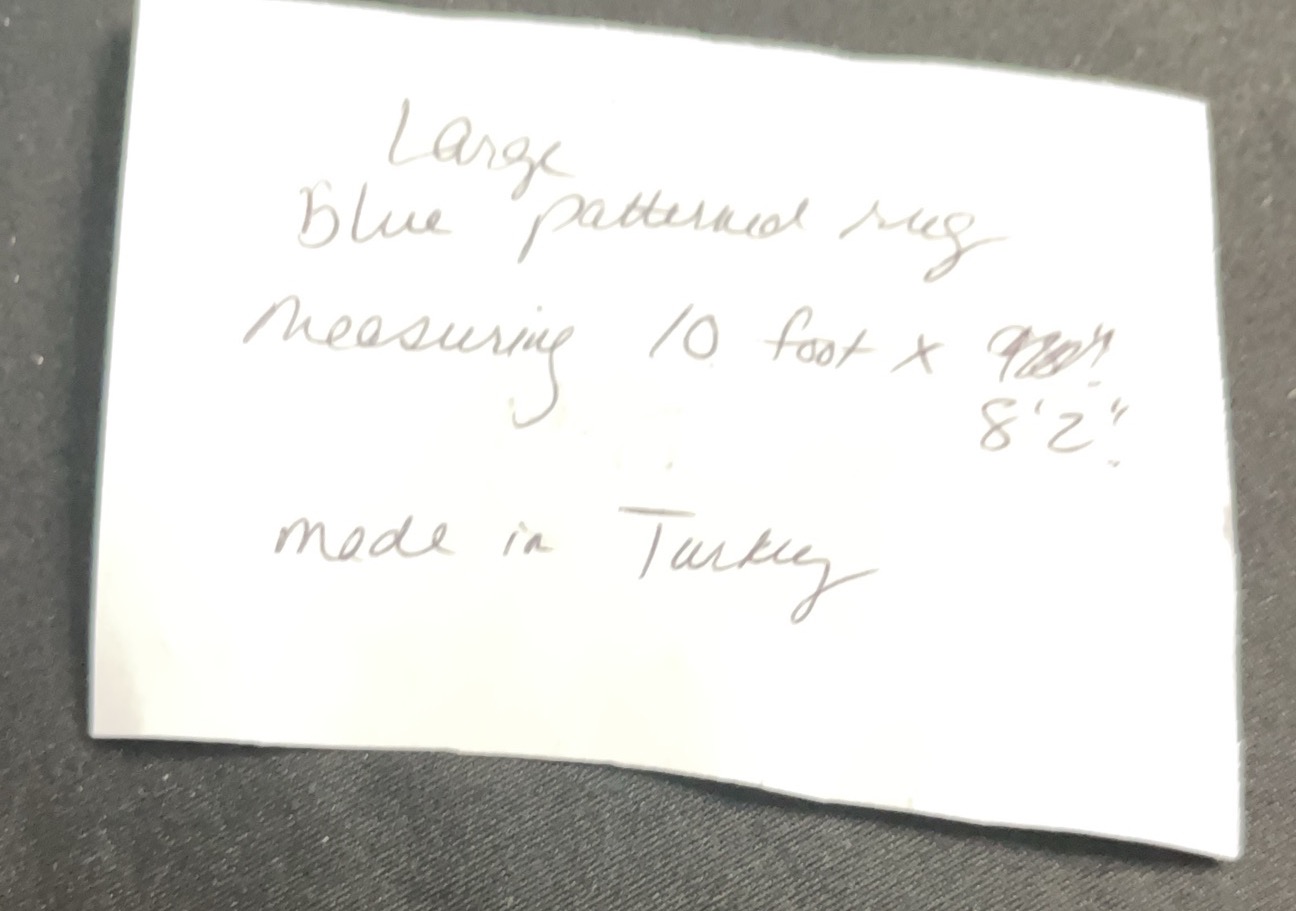 Large
Blue patterned rug
measuring 10 foot x
8'2"
made in Turkey